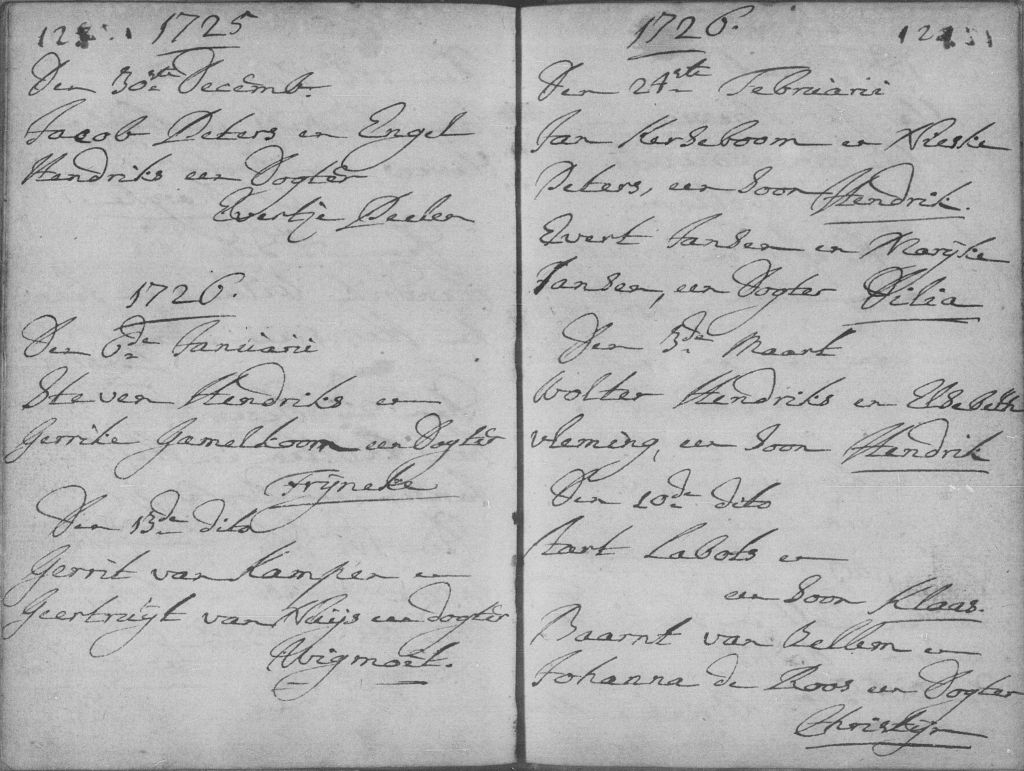 1725
Den 30ste Decemb.
Jacob Peters en Engel
Hendriks een Dogter
Evertje Peelen
1726.
Den 6de Januarii
Steven Hendriks en
Gerrike Gamelkoom een Dogter
Trijneke
Den 13de dito
Gerrit van Kampen en
Geertruijt van Nuijs een dogter
1726.
Den 24ste Februarii
Jan Kerseboom en Nieske
Peters, een Soon Hendrik.
Evert Jansen en Marijke
Jansen, een Dogter Dilia
Den 3de Maart
Wolter Hendriks en Elsebeth
vleming, een Soon Hendrik
Den 10de dito
Aart Labots en
een Soon Klaas.
Baarnt van Bellem en
Johanna de Roos een Dogter
Christijn